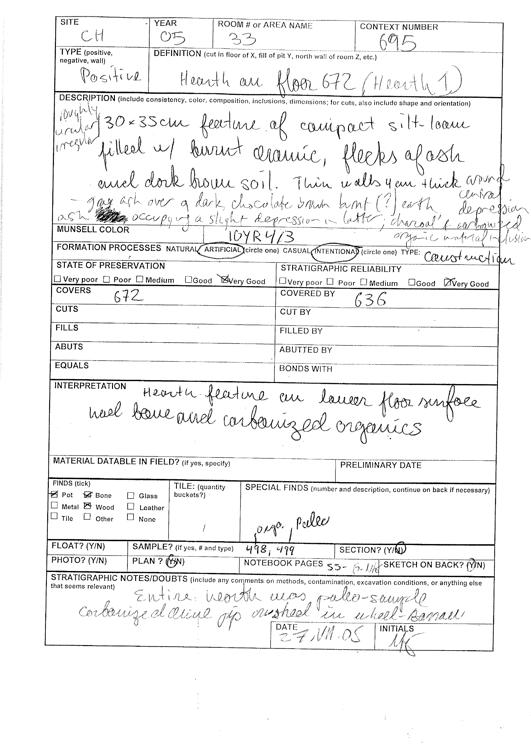 SITE YEAR ROOM # or AREA NAME CONTEXT NUMBER
CH 05 33 695
TYPE (positive, negative, wall) DEFINITION (cut in floor of X, fill of pit Y, north wall of room Z, etc.)
Positive Hearth on floor 672 (Hearth 1)
DESCRIPTION (include consistency, color, composition, inclusions, dimensions; for cuts, also include shape and orientation)
roughly circular irregular
30 x 35cm feature of compact silt-loam
filled w/ burnt ceramic, flecks of ash
and dark brown soil. Thin walls 4cm thick around central depression
- gray ash over a dark chocolate brown burnt (?) earth
ash occupying a slight depression in latter, charcoal & carbonized
organic material inclusion
MUNSELL COLOR 10YR 4/3
FORMATION PROCESSES NATURAL ARTIFICIAL (circle one) CASUAL INTENTIONAL (circle one) TYPE: Construction
STATE OF PRESERVATION STRATIGRAPHIC RELIABILITY
☐Very poor ☐ Poor ☐ Medium ☐Good ☑Very Good ☐Very poor ☐ Poor ☐ Medium ☐Good ☑Very Good
COVERS 672 COVERED BY 636
CUTS CUT BY
FILLS FILLED BY
ABUTS ABUTTED BY
EQUALS BONDS WITH
INTERPRETATION Hearth feature on lower floor surface
had bone and carbonized organics
MATERIAL DATABLE IN FIELD? (if yes, specify) PRELIMINARY DATE
FINDS (tick) TILE: (quantity buckets?) SPECIAL FINDS (number and description, continue on back if necessary)
☑ Pot ☑ Bone ☐ Glass
☐ Metal ☑ Wood ☐ Leather
☐ Tile ☐ Other ☐ None
/ orga. Paleo
FLOAT? (Y/N) SAMPLE? (if yes, # and type) 498, 499 SECTION? (Y/N)
PHOTO? (Y/N) PLAN ? (Y/N) NOTEBOOK PAGES 55- SKETCH ON BACK? (Y/N)
STRATIGRAPHIC NOTES/DOUBTS (include any comments on methods, contamination, excavation conditions, or anything else that seems relevant)
Entire hearth was paleo-sample
Carbonized olive pip crushed in wheel-barrow
DATE INITIALS
27.VII.05